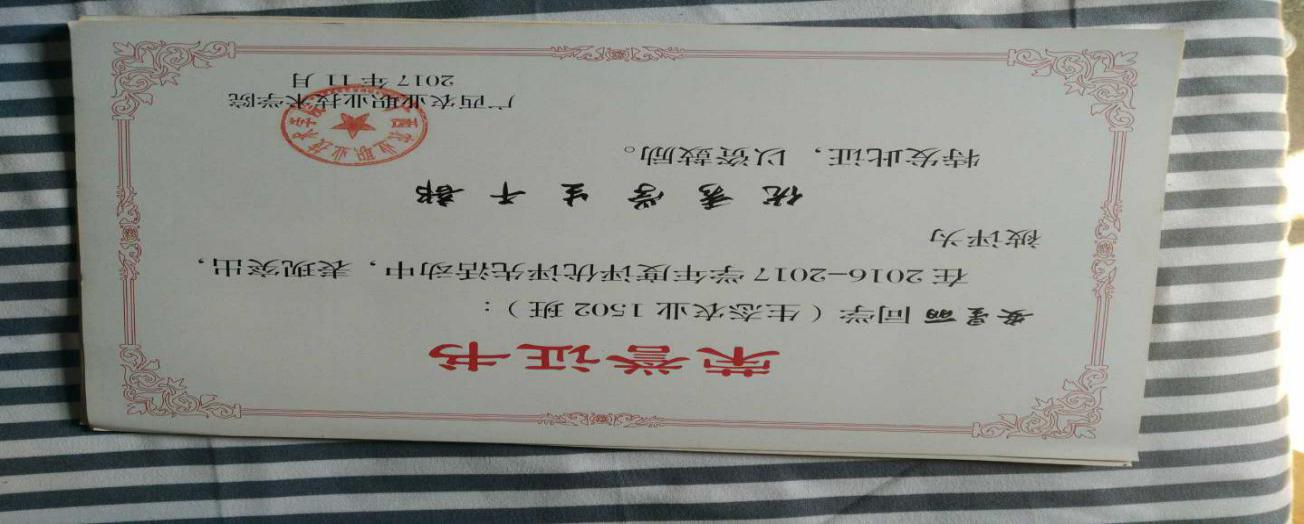 荣誉证书
安星丽同学（生态农业1502班）：
在2016-2017学年度评优评先活动中，表现突出，
被评为
优秀学生干部
特发此证，以资鼓励。
广西农业职业技术学院
2017年11月
广西农业职业技术学院